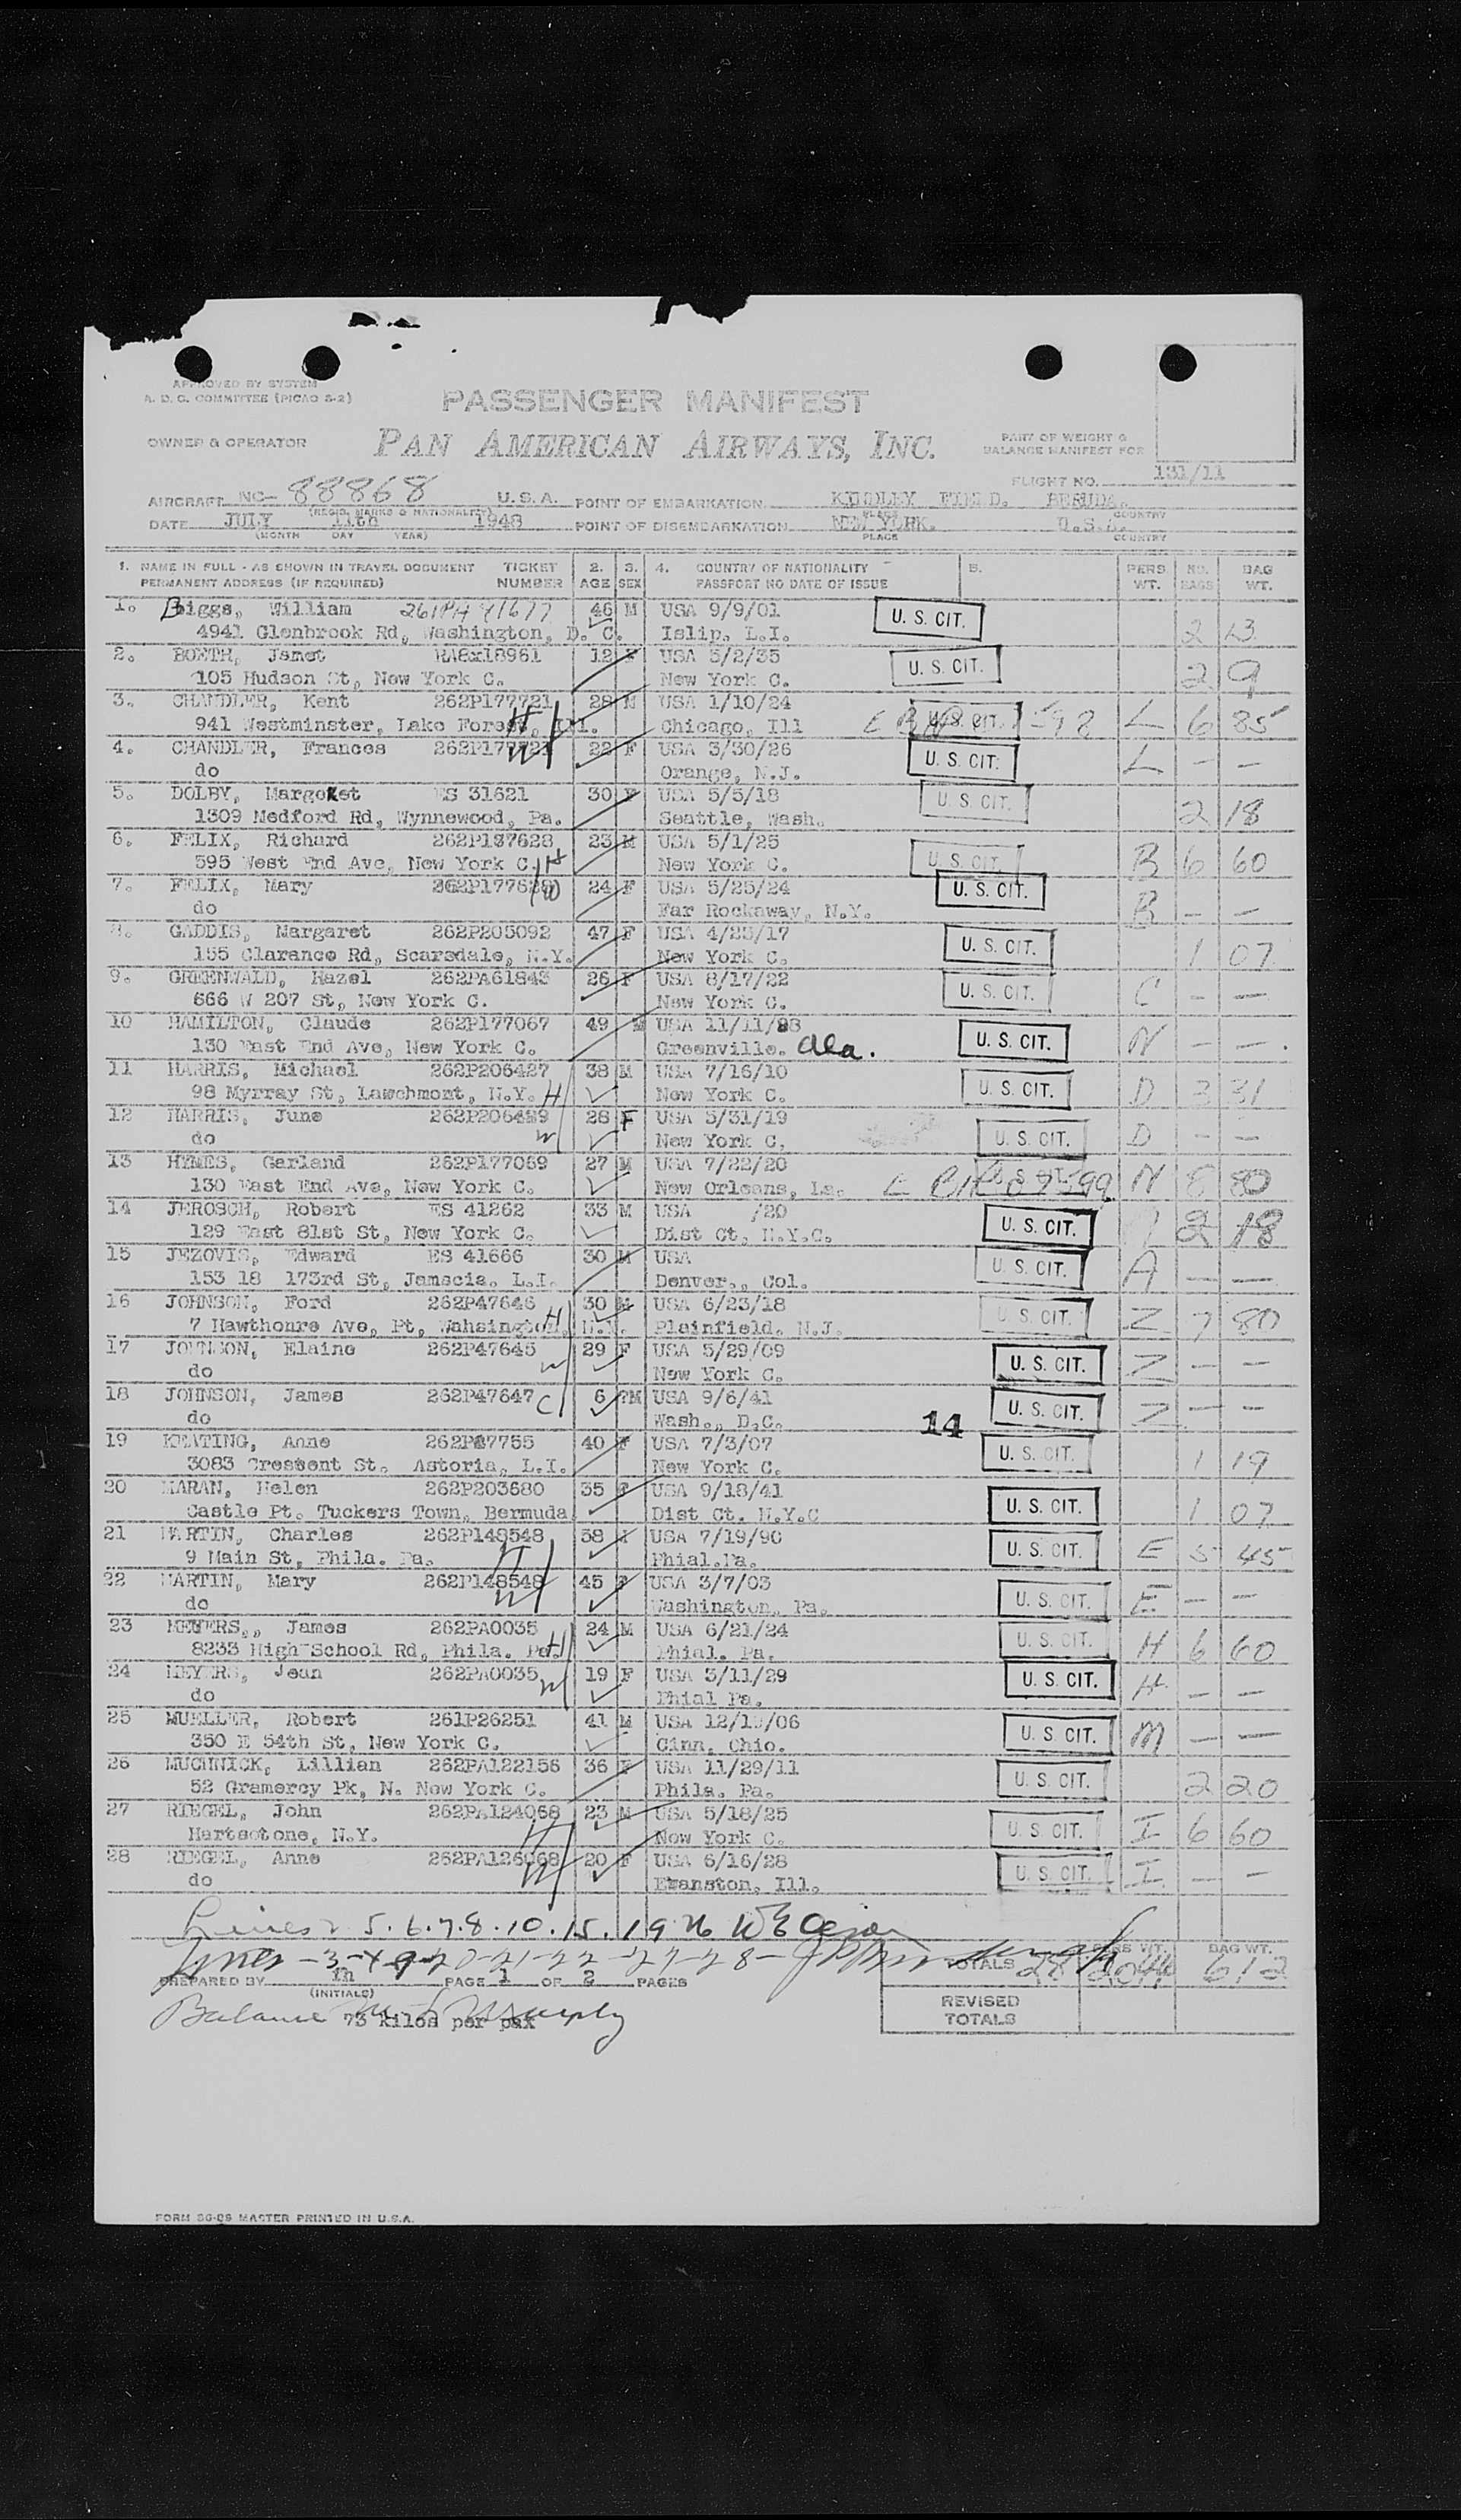 APPROVED BY SYSTEM
A. D. C. COMMITTEE (PICAO S-2)
PASSENGER MANIFEST
OWNER & OPERATOR
PAN AMERICAN AIRWAYS, INC.
PART OF WEIGHT &
BALANCE MANIFEST FOR
FLIGHT NO. 131/11
AIRCRAFT NC- 88868 U.S.A. POINT OF EMBARKATION KINDLEY FIELD. BERUDA.
(REGIS. MARKS & NATIONALITY) PLACE COUNTRY
DATE JULY 11th 1948 POINT OF DISEMBARKATION NEW YORK. U.S.A.
(MONTH DAY YEAR) PLACE COUNTRY
1. NAME IN FULL - AS SHOWN IN TRAVEL DOCUMENT TICKET 2. 3. 4. COUNTRY OF NATIONALITY 5. PERS NO. BAG
PERMANENT ADDRESS (IF REQUIRED) NUMBER AGE SEX PASSPORT NO DATE OF ISSUE WT. BAGS WT.
1. Biggs, William 46 M USA 9/9/01 U. S. CIT.
4941 Glenbrook Rd, Washington, D. C. Islip, L.I. 2 23
2. BOETH, Janet 12 F USA 5/2/35 U. S. CIT.
105 Hudson St, New York C. New York C. 2 9
3. CHANDLER, Kent 262P177721 28 M USA 1/10/24 U. S. CIT.
941 Westminster, Lake Forest, Ill. H Chicago, Ill L 6 85
4. CHANDLER, Frances 22 F USA 3/30/26 U. S. CIT.
do W Orange, N.J. L - -
5. DOLBY, Margaret ES 31621 30 F USA 5/5/18 U. S. CIT.
1309 Medford Rd, Wynnewood, Pa. Seattle, Wash. 2 18
6. FELIX, Richard 262P137628 23 M USA 5/1/25 U. S. CIT.
595 West End Ave, New York C. H New York C. B 6 60
7. FELIX, Mary 24 F USA 5/25/24 U. S. CIT.
do W Far Rockaway, N.Y. B - -
8. GADDIS, Margaret 262P205092 47 F USA 4/25/17 U. S. CIT.
155 Clarance Rd, Scarsdale, N.Y. New York C. 1 07
9. GREENWALD, Hazel 262PA61843 26 F USA 8/17/22 U. S. CIT.
666 W 207 St, New York C. New York C. C - -
10 HAMILTON, Claude 262P177067 49 M USA 11/11/98 U. S. CIT.
130 East End Ave, New York C. Greenville. Ala. N - -
11 HARRIS, Michael 262P206427 38 M USA 7/16/10 U. S. CIT.
98 Myrray St, Lawchmont, N.Y. H New York C. D 3 31
12 HARRIS, June 28 F USA 5/31/19 U. S. CIT.
do W New York C. D - -
13 HYMES, Garland 262P177069 27 M USA 7/22/20
130 East End Ave, New York C. New Orleans, La. N 8 80
14 JEROSCH, Robert ES 41262 33 M USA /20 U. S. CIT.
129 East 81st St, New York C. Dist Ct, N.Y.C. 2 18
15 JEZOVIS, Edward ES 41666 30 M USA U. S. CIT.
153 18 173rd St, Jamacia. L.I. Denver., Col. A - -
16 JOHNSON, Ford 262P47646 30 M USA 6/23/18 U. S. CIT.
7 Hawthonre Ave, Pt, Wahsington, N.Y. H Plainfield, N.J. Z 7 80
17 JOHNSON, Elaine 262P47645 29 F USA 5/29/09 U. S. CIT.
do W New York C. Z - -
18 JOHNSON, James 262P47647 C 6 M USA 9/6/41 U. S. CIT.
do Wash., D.C. 14 Z - -
19 KEATING, Anne 40 F USA 7/3/07 U. S. CIT.
3083 Crescent St. Astoria, L.I. New York C. 1 19
20 MARAN, Helen 262P203680 35 F USA 9/18/41 U. S. CIT.
Castle Pt. Tuckers Town, Bermuda Dist Ct. N.Y.C 1 07
21 MARTIN, Charles 262P148548 58 USA 7/19/90 U. S. CIT.
9 Main St, Phila. Pa. H Phial.Pa. E 5 45
22 MARTIN, Mary 262P148548 45 F USA 3/7/03 U. S. CIT.
do W Washington, Pa. E - -
23 MEYERS,, James 262PA0035 24 M USA 6/21/24 U. S. CIT.
8233 High School Rd, Phila. Pa. H Phial. Pa. H 6 60
24 MEYERS, Jean 262PA0035 19 F USA 3/11/29 U. S. CIT.
do W Phial Pa. H - -
25 MUELLER, Robert 261P26251 41 M USA U. S. CIT.
350 E 54th St, New York C. Cinn, Ohio. M - -
26 MUCHNICK, Lillian 262PA122156 36 F USA 11/29/11 U. S. CIT.
52 Gramercy Pk, N. New York C. Phila. Pa. 2 20
27 RIEGEL, John 262PA124068 23 M USA 5/18/25 U. S. CIT.
Hartsotone, N.Y. H New York C. I 6 60
28 RIEGEL, Anne 262PA126068 20 F USA 6/16/28 U. S. CIT.
do W Evanston, Ill. I - -
Lines 2 5. 6. 7. 8. 10. 15. 19 26
Lines -3-4-9-20-21-22-27-28-
PREPARED BY PAGE 1 OF 2 PAGES TOTALS 28 PERS WT. BAG WT. 612
(INITIALS)
Balance Murphy
73 kilos per pax
REVISED
TOTALS
FORM SG-98 MASTER PRINTED IN U.S.A.